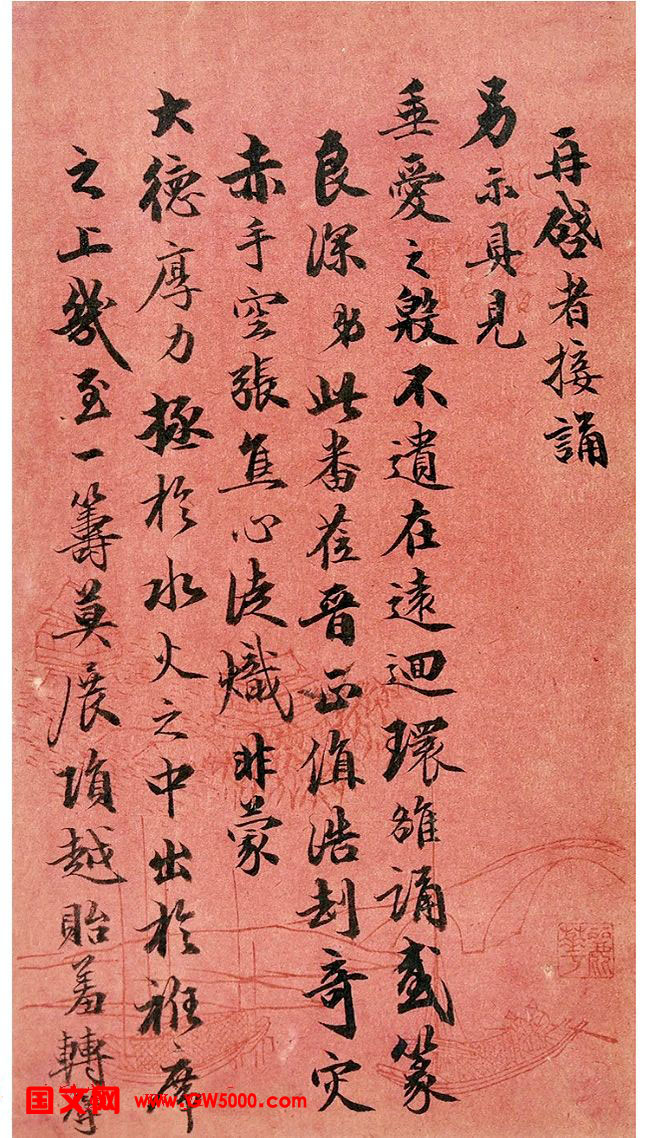 再啓者接誦
另示具見
垂愛之殷不遺在遠迴環雒誦感篆
良深弟此番蒞晉正值浩刦奇灾
赤手空張焦心徒熾非蒙
大德厚力拯於水火之中出於袵席
之上幾至一籌莫展隕越貽羞轉
国文网 www.GW5000.com